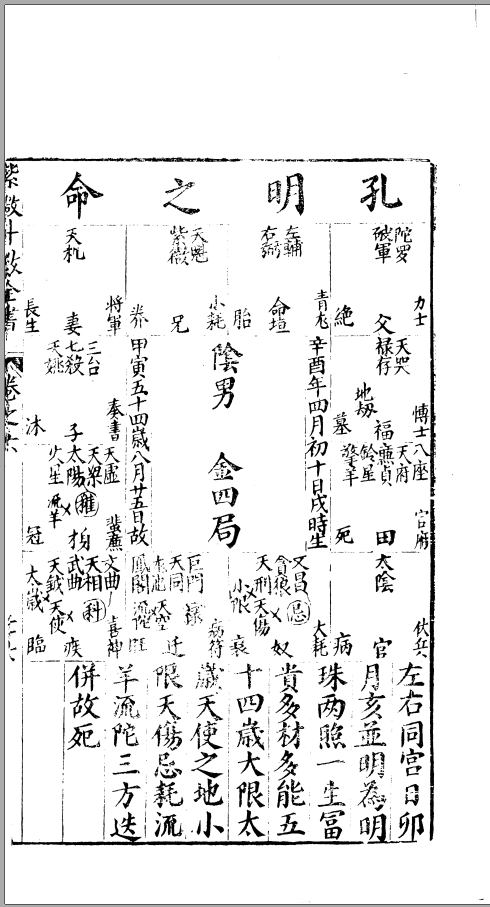 孔明之命
陀羅
破軍
力士
父
絕
左輔
右弼
青龙
命垣
胎
天魁
紫微
小耗
兄
养
天机
將軍
妻
長生
天哭
禄存
地刼
博士
福
墓
八座
天府
廉貞
鈴星
擎羊
官府
田
死
太陰
伏兵
官
病
文昌
貪狼
天刑
天傷
小限
忌
大耗
奴
衰
巨門
天同
天空
禄
鳳閣
流陀
病符
迁
旺
文曲
天相
武曲
天钺
天使
太歲
科
喜神
疾
臨
天虛
天梁
太陽
火星
流羊
權
蜚廉
冠
三台
七殺
天姚
奏書
子
沐
辛酉年四月初十日戌時生
陰男　金四局
甲寅五十四歲八月廿五日故
左右同宮日卯
月亥並明為明
珠两照一生富
貴多材多能五
十四歲大限太
歲天使之地小
限天傷忌耗流
羊流陀三方迭
併故死
紫微斗数全書